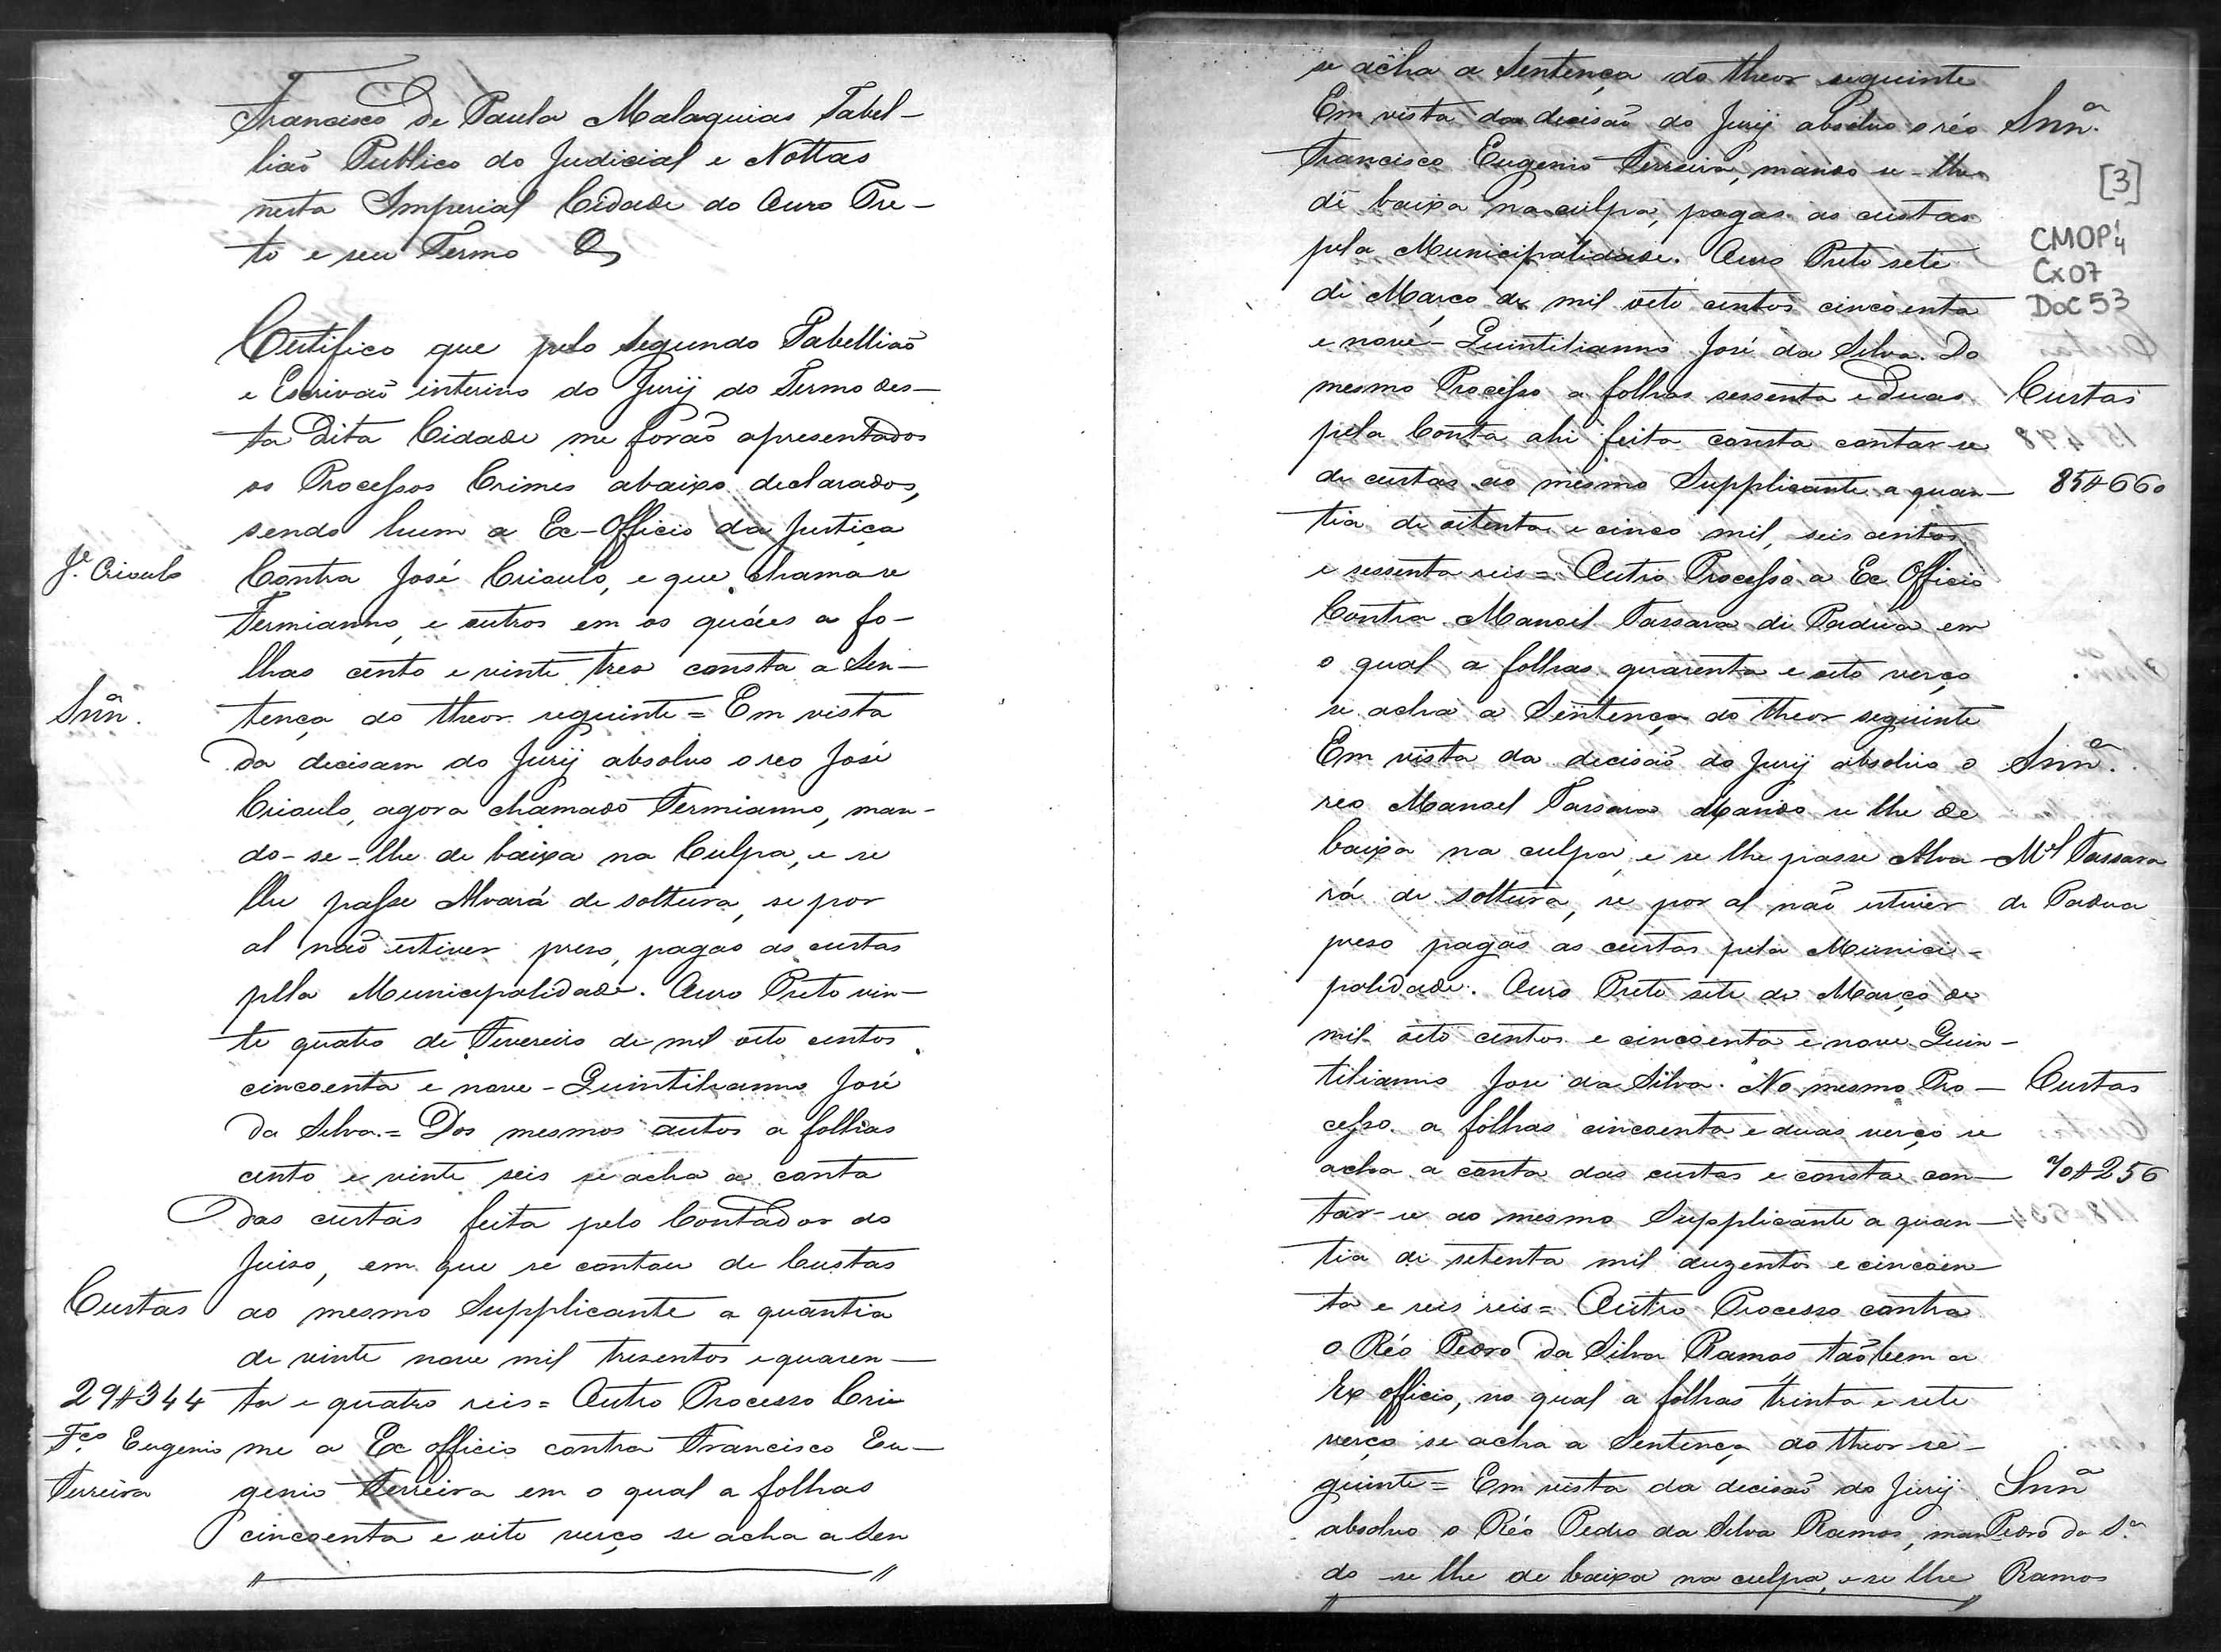 Francisco de Paula Malaquias Tabel-
lião Publico do Judicial e Nottas
nesta Imperial Cidade do Ouro Pre-
to e seu Termo &
Certifico que pelo Segundo Tabellião
e Escrivão interino do Jurij do Termo des-
ta dita Cidade me forão apresentados
os Processos Crimes abaixo declarados,
sendo hum a Ex-Officio da Justiça
Je. Crioulo
Contra José Crioulo, e que chama-se
Fermianno, e outros em os quáes a fo-
lhas cento e vinte tres consta a Sen-
Snn.ª
tença do theor seguinte = Em vista
da decisam do Jurij absolvo o reo José
Crioulo, agora chamado Fermianno, man-
do-se-lhe de baixa na Culpa, e se
lhe passe Alvará de soltura, se por
al não estiver preso, pagas as custas
pella Municipalidade. Ouro Preto vin-
te quatro de Fevereiro de mil oito centos
cincoenta e nove - Quintilianno José
da Silva. = Dos mesmos autos a folhas
cento e vinte seis se acha a conta
das custas feita pelo Contador do
Juiso, em que se contou de Custas
Custas
ao mesmo Supplicante a quantia
de vinte nove mil tresentos e quaren-
29#344
ta e quatro reis = Outro Processo Cri-
Fco. Eugenio
me a Ex officio contra Francisco Eu-
Ferreira
genio Ferreira em o qual a folhas
cincoenta e oito verço se acha a Sen
se acha a Sentença do theor seguinte
Em vista da decisão do Jurij absolvo o réo
Snn.ª
Francisco Eugenio Ferreira, mando se-lhe
[3]
dê baixa na culpa, pagas as custas
pela Municipalidade. Ouro Preto sete
CMOP 4
Cx 07
de Março de mil oito centos cincoenta
Doc 53
e nove - Quintilianno José da Silva. Do
mesmo Processo a folhas sessenta e duas
Custas
pela Conta ahi feita consta contar-se
de custas ao mesmo Supplicante a quan-
85#660
tia de oitenta e cinco mil, seis centos
e sessenta reis = Outro Processo a Ex Officio
Contra Manoel Tassara de Padua em
o qual a folhas quarenta e oito verço
se acha a Sentença do theor seguinte
Em vista da decisão do Jurij absolvo o
Snn.ª
reo Manoel Tassara Mando se lhe de
baixa na culpa, e se lhe passe Alva-
Mel Tassara
rá de soltura, se por al não estiver
de Padua
preso pagas as custas pela Munici-
palidade. Ouro Preto sete de Março de
mil oito centos e cincoenta e nove Quin-
tilianno José da Silva. No mesmo Pro-
Custas
cesso a folhas cincoenta e duas verço se
acha a conta das custas e consta con-
70#256
tar-se ao mesmo Supplicante a quan-
tia de setenta mil duzentos e cincoen-
ta e seis reis = Outro Processo contra
o Réo Pedro da Silva Ramos tãobem a
Ex officio, no qual a folhas trinta e sete
verço se acha a Sentença do theor se-
guinte = Em vista da decisão do Jurij
Snn.ª
absolvo o Réo Pedro da Silva Ramos, man
Pedro da S.ª
do-se lhe de baixa na culpa, e se lhe
Ramos